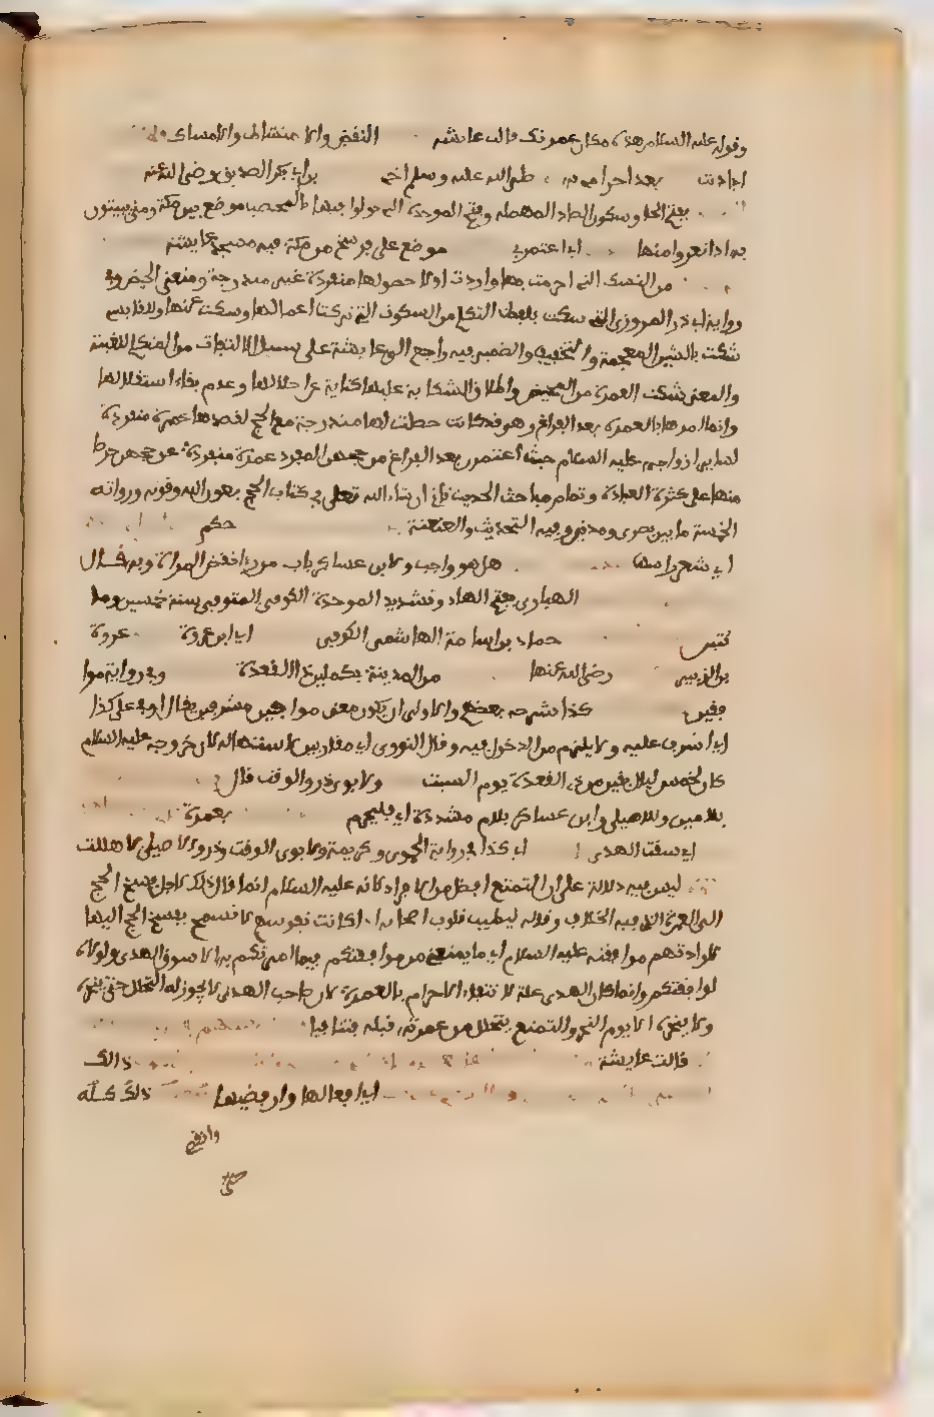 وقوله عليه السلام هذه مكان عمرتك قالت عائشة النقض والامتشاط والامساك
بعد احرامي به صلى الله عليه وسلم اخي بن ابي بكر الصديق رضي الله عنه
بفتح الحا وسكون الصاد المهملة وفتح الموحدة التي نزلوا فيها بالمحصب موضع بين مكة ومنى يبيتون
به اذا نفروا منها اي اعتمرني موضع على فرسخ من مكة فيه مسجد عايشة
من النسك التي احرمت بها واردت اولا حصولها منفردة غير مندرجة ومنعني الحيض وفي
رواية ابي ذر المروزي التي سكت بلفظ التكلم من السكوت التي تركت اعمالها وسكت عنها وللقابسي
شكت بالشين المعجمة والتخفيف والضمير فيه راجع الى عايشة على سبيل الالتفات من المتكلم للغيبة
والمعنى شكت العمرة من الحيض واطلاق الشكاية عليها كناية عن اختلالها وعدم بقاء استقلالها
وانما امرها بالعمرة بعد الفراغ وهي قد كانت حصلت لها مندرجة مع الحج لقصدها عمرة منفردة
لساير ازواجه عليه السلام حيث اعتمرن بعد الفراغ من حجهن المفرد عمرة منفردة عن حجهن حرصا
منها على كثرة العبادة وتمام مباحث الحديث تاتي ان شاء الله تعالى في كتاب الحج بعون الله وقوته ورواته
الخمسة ما بين بصري ومدني وفيه التحديث والعنعنة حكم
اي شعر راسها هل هو واجب ولابن عساكر باب من راى نقض المراة وبه قال
الهباري بفتح الهاء وتشديد الموحدة الكوفي المتوفى سنة خمسين وما
ئتين حماد بن اسامة الهاشمي الكوفي اي ابن عروة عروة
بن الزبير رضي الله عنها من المدينة مكملين ذا القعدة وفي رواية موا
فقين كذا شرحه بعضهم والاولى ان يكون معنى موافين مشرفين يقال اوفى على كذا
اي اشرف عليه ولا يلزم من الدخول فيه وقال النووي اي مقاربين لاستهلاله لان خروجه عليه السلام
كان لخمس ليال بقين من ذي القعدة يوم السبت ولابوي ذر والوقت فقال
بلامين وللاصيلي وابن عساكر بلام مشددة اي فليحرم بعمرة
اي سقت الهدي اي كذا في رواية الحموي وكريمة ولابوي الوقت وذر والاصيلي لاهللت
ليس فيه دلالة على ان التمتع افضل من الافراد لانه عليه السلام انما قال ذلك لاجل فسخ الحج
الى العمرة الذي فيه الخلاف وقاله ليطيب قلوب اصحابه اذ كانت نفوسهم لا تسمح بفسخ الحج اليها
لارادتهم موافقته عليه السلام اي ما يمنعني من موافقتكم فيما امرتكم به الا سوق الهدي ولولاه
لوافقتكم وانما كان الهدي علة لانتفاء الاحرام بالعمرة لان صاحب الهدي لا يجوز له التحلل حتى ينحره
ولا ينحره الا يوم النحر والتمتع يتحلل من عمرته قبله فتنافيا
قالت عايشة ذالك
اي افعالها وارفضيها ذلك كله
وانقضي